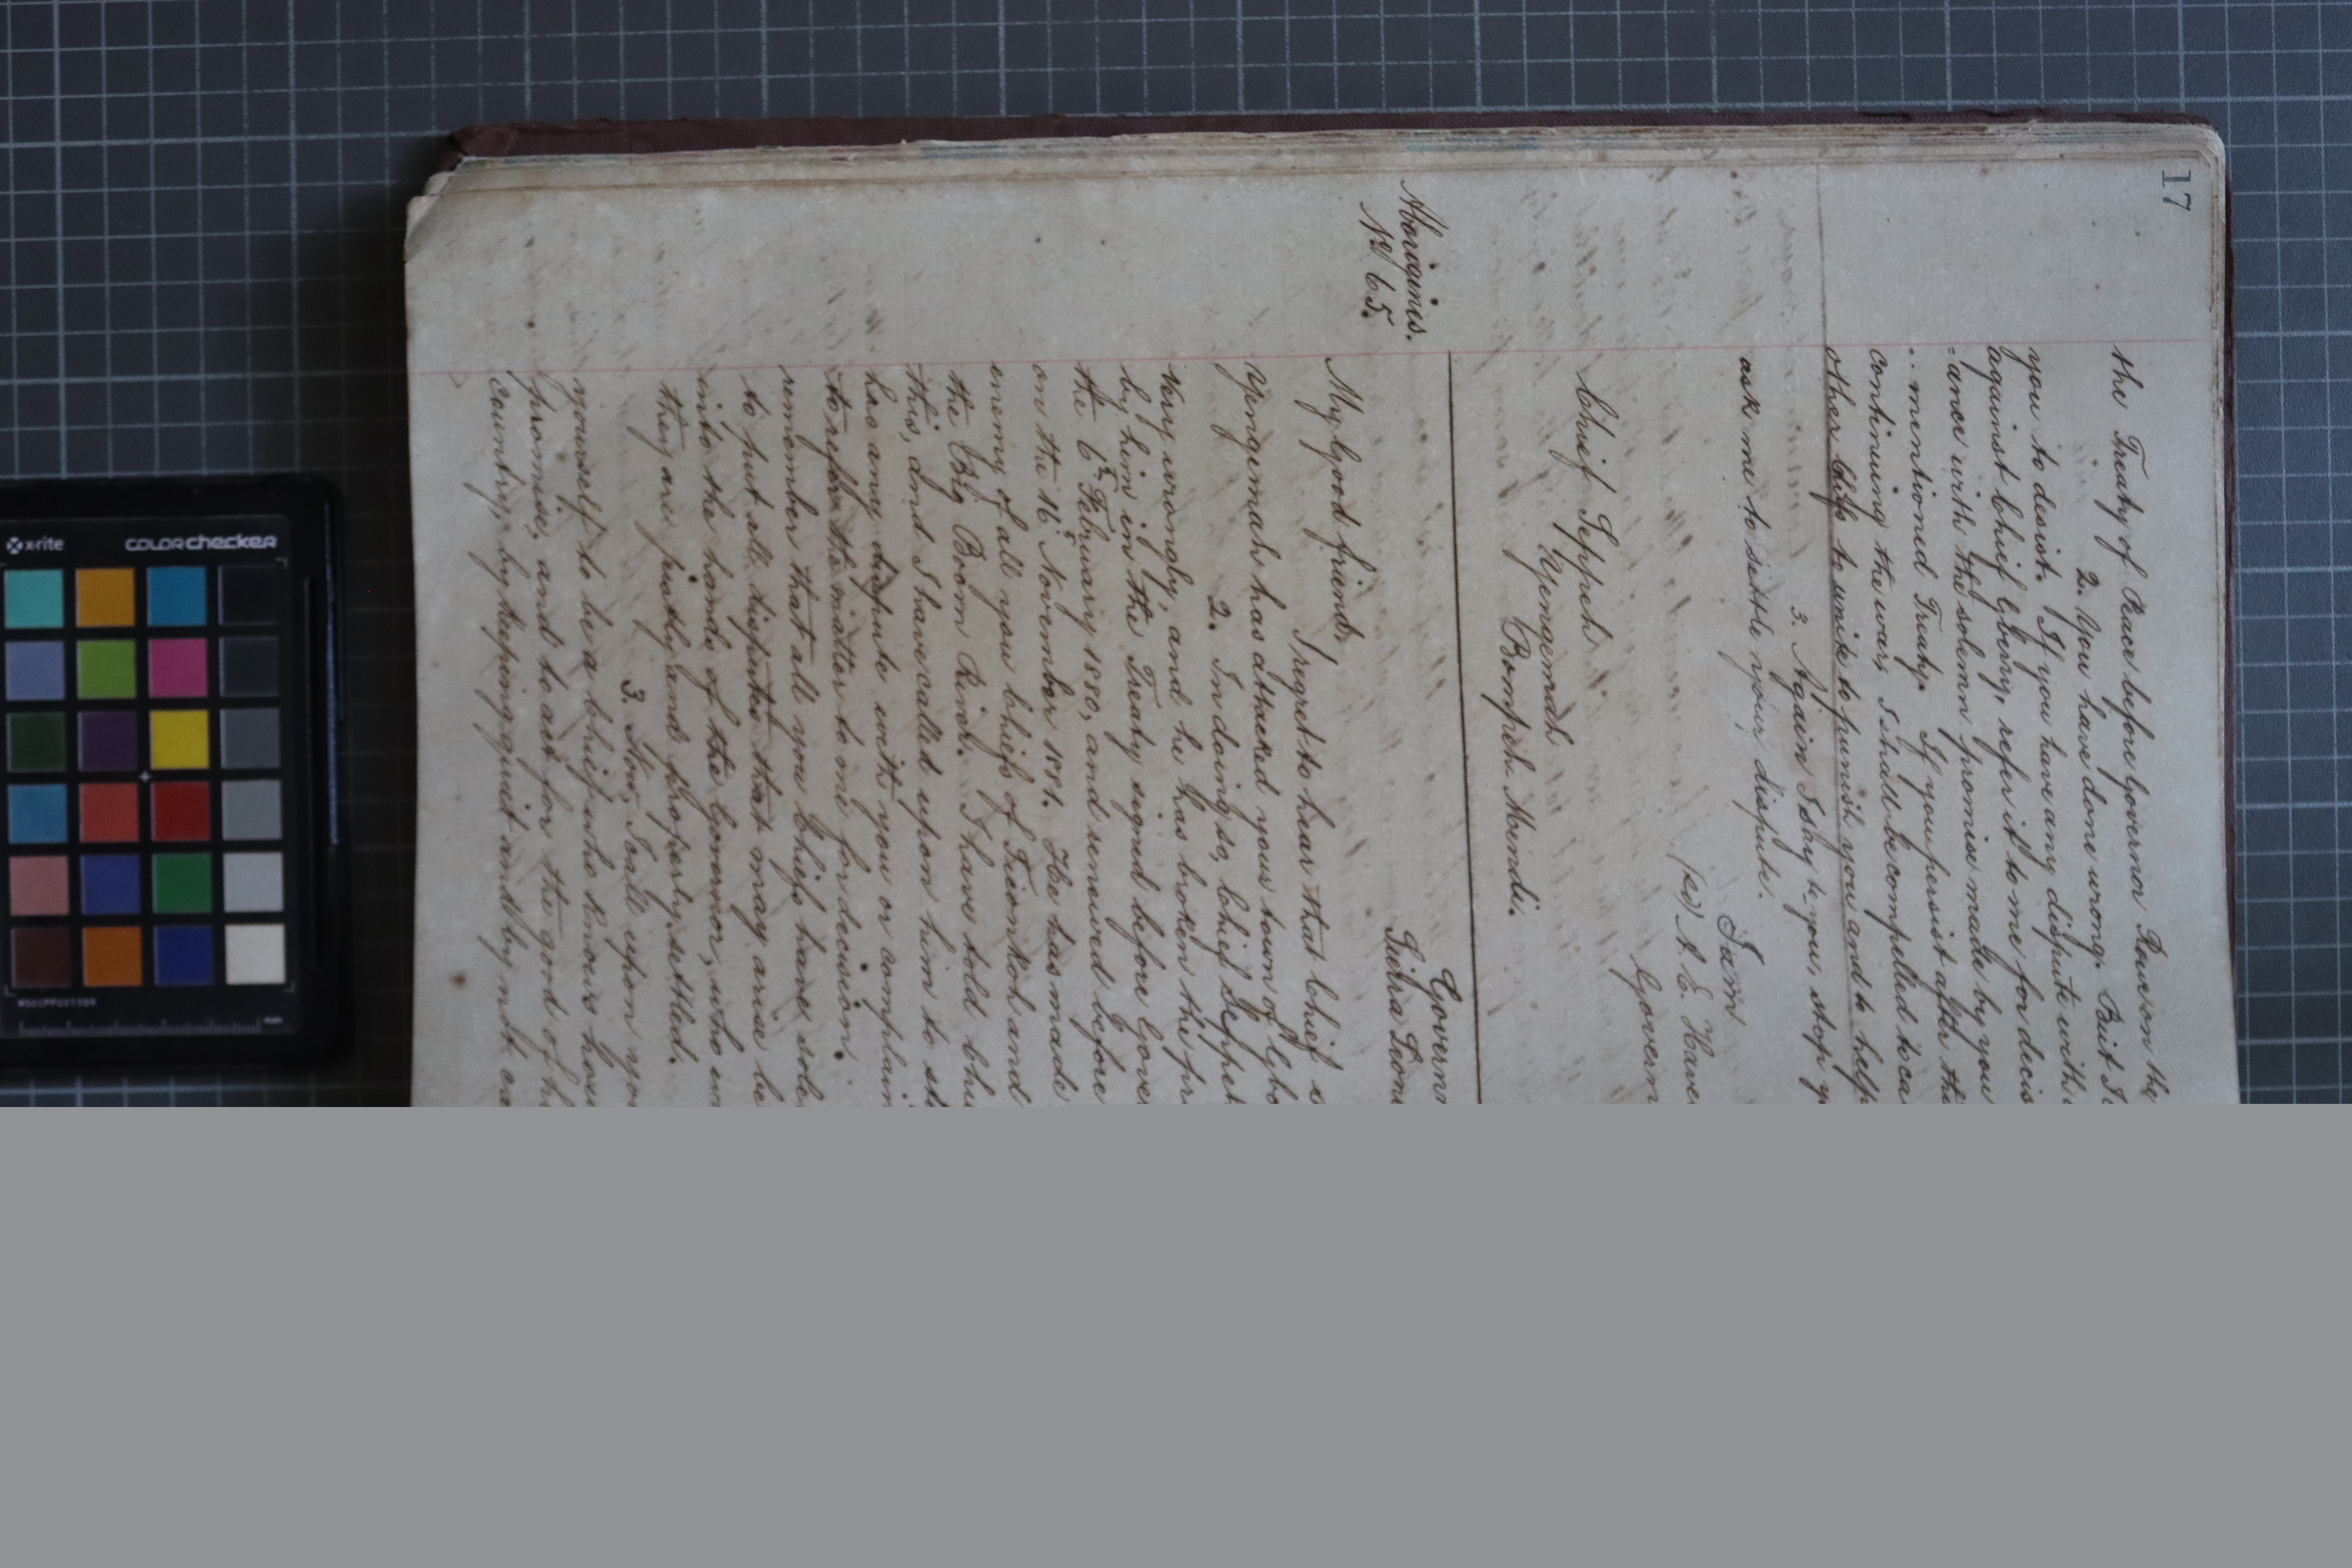 17
the Treaty of Peace before Governor Rowe on the
2. You have done wrong. But I
you to desist. If you have any dispute with
against Chief Gbeny, refer it to me for decis
= ance with the solemn promise made by you
.. mentioned Treaty. If you persist after th
continuing the war, I shall be compelled to ca
other chiefs to unite to punish you and to help
3. Again I say to you, stop y
ask me to settle your dispute.
I am
(sd) A. E. Have
Govern
Chief Seppeh
Yengemah
Bompeh Mendi.
Aborigines.
No 65.
Governm
Sierra Leon
My Good friend,
I regret to hear that Chief
Yengemah has attacked your town of Gbo
2. In doing so, Chief Seppeh
very wrongly, and he has broken the pr
by him in the Treaty signed before Gove
the 6th February 1880, and renewed before
on the 16th November 1881. He has made
enemy of all you Chiefs of Tieonkoh and
the Big Boom River. I have told Chi
this, and I have called upon him to st
has any dispute with you or complain
to refer the matter to me for decision.
remember that all you Chiefs have sole
to put all disputes that may arise be
into the hands of the Governor, who
they are justly and properly settled.
3. Now, I call upon you
yourself to be a Chief who knows how
promise, and to act for the good of h
country, by keeping quiet and by not
x-rite
colorchecker